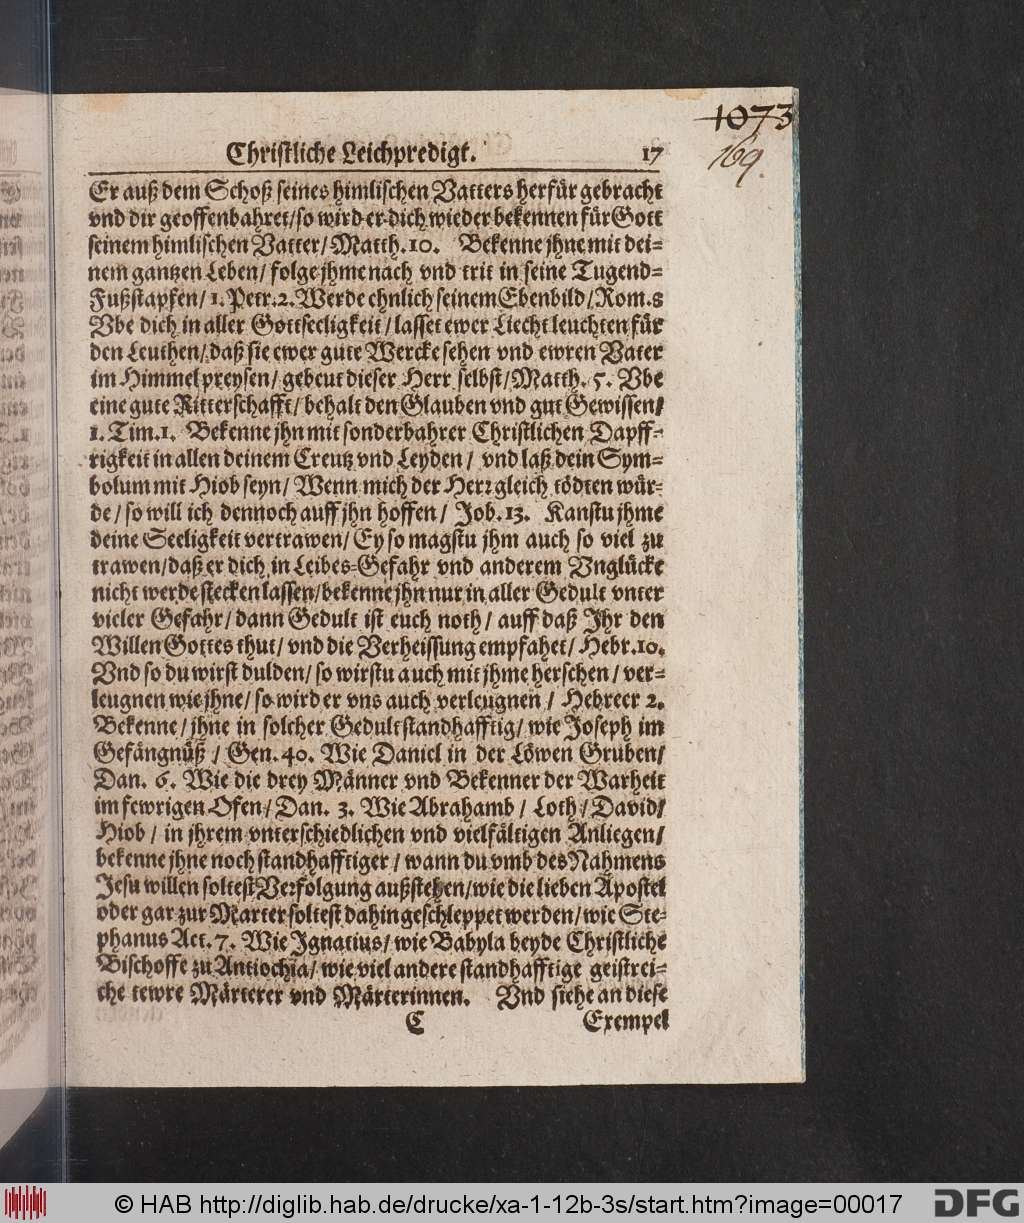 1073
169.
Christliche Leichpredigt. 17
Er auß dem Schoß seines himlischen Vatters herfür gebracht
vnd dir geoffenbahret/so wird er dich wieder bekennen für Gott
seinem himlischen Vatter/Matth.10. Bekenne jhne mit dei-
nem gantzen Leben/folge jhme nach vnd trit in seine Tugend-
Fußstapfen/1.Petr.2. Werde ehnlich seinem Ebenbild/Rom.8
Vbe dich in aller Gottseeligkeit/lasset ewer Liecht leuchten für
den Leuthen/daß sie ewer gute Wercke sehen vnd ewren Vater
im Himmel preysen/gebeut dieser Herr selbst/Matth. 5. Vbe
eine gute Ritterschafft/behalt den Glauben vnd gut Gewissen/
1.Tim.1. Bekenne jhn mit sonderbahrer Christlichen Dapff-
rigkeit in allen deinem Creutz vnd Leyden/ vnd laß dein Sym-
bolum mit Hiob seyn/ Wenn mich der Herr gleich tödten wür-
de/so will ich dennoch auff jhn hoffen/ Job.13. Kanstu jhme
deine Seeligkeit vertrawen/ Ey so magstu jhm auch so viel zu
trawen/daß er dich in Leibes-Gefahr vnd anderem Vnglücke
nicht werde stecken lassen/bekenne jhn nur in aller Gedult vnter
vieler Gefahr/dann Gedult ist euch noth/ auff daß Ihr den
Willen Gottes thut/ vnd die Verheissung empfahet/ Hebr.10.
Vnd so du wirst dulden/so wirstu auch mit jhme herschen/ver-
leugnen wie jhne/so wird er vns auch verleugnen / Hebreer 2.
Bekenne/jhne in solcher Gedult standhafftig/wie Joseph im
Gefängnüß / Gen. 40. Wie Daniel in der Löwen Gruben/
Dan. 6. Wie die drey Männer vnd Bekenner der Warheit
im fewrigen Ofen/Dan. 3. Wie Abrahamb / Loth/David/
Hiob / in jhrem vnterschiedlichen vnd vielfältigen Anliegen/
bekenne jhne noch standhafftiger / wann du vmb des Nahmens
Jesu willen soltest Verfolgung außstehen/wie die lieben Apostel
oder gar zur Marter soltest dahin geschleppet werden/wie Ste-
phanus Act.7. Wie Ignatius/wie Babyla beyde Christliche
Bischoffe zu Antiochia/wie viel andere standhafftige geistrei-
che tewre Märterer vnd Märterinnen. Vnd siehe an diese
C Exempel
© HAB http://diglib.hab.de/drucke/xa-1-12b-3s/start.htm?image=00017 DFG